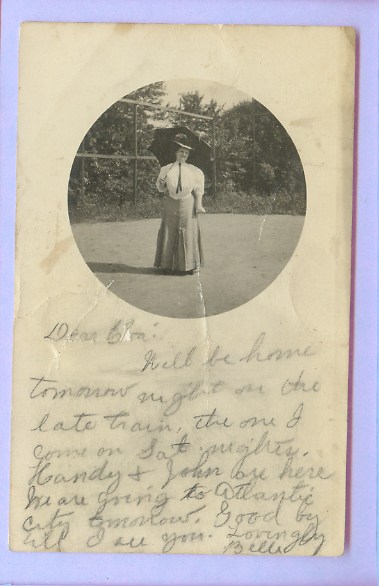 Dear Cloa:
Will be home
tomorrow night on the
late train, the one I
come on Sat. nights.
Handy & John are here
We are going to Atlantic
City tomorrow. Good by
till I see you. Lovingly
Belle